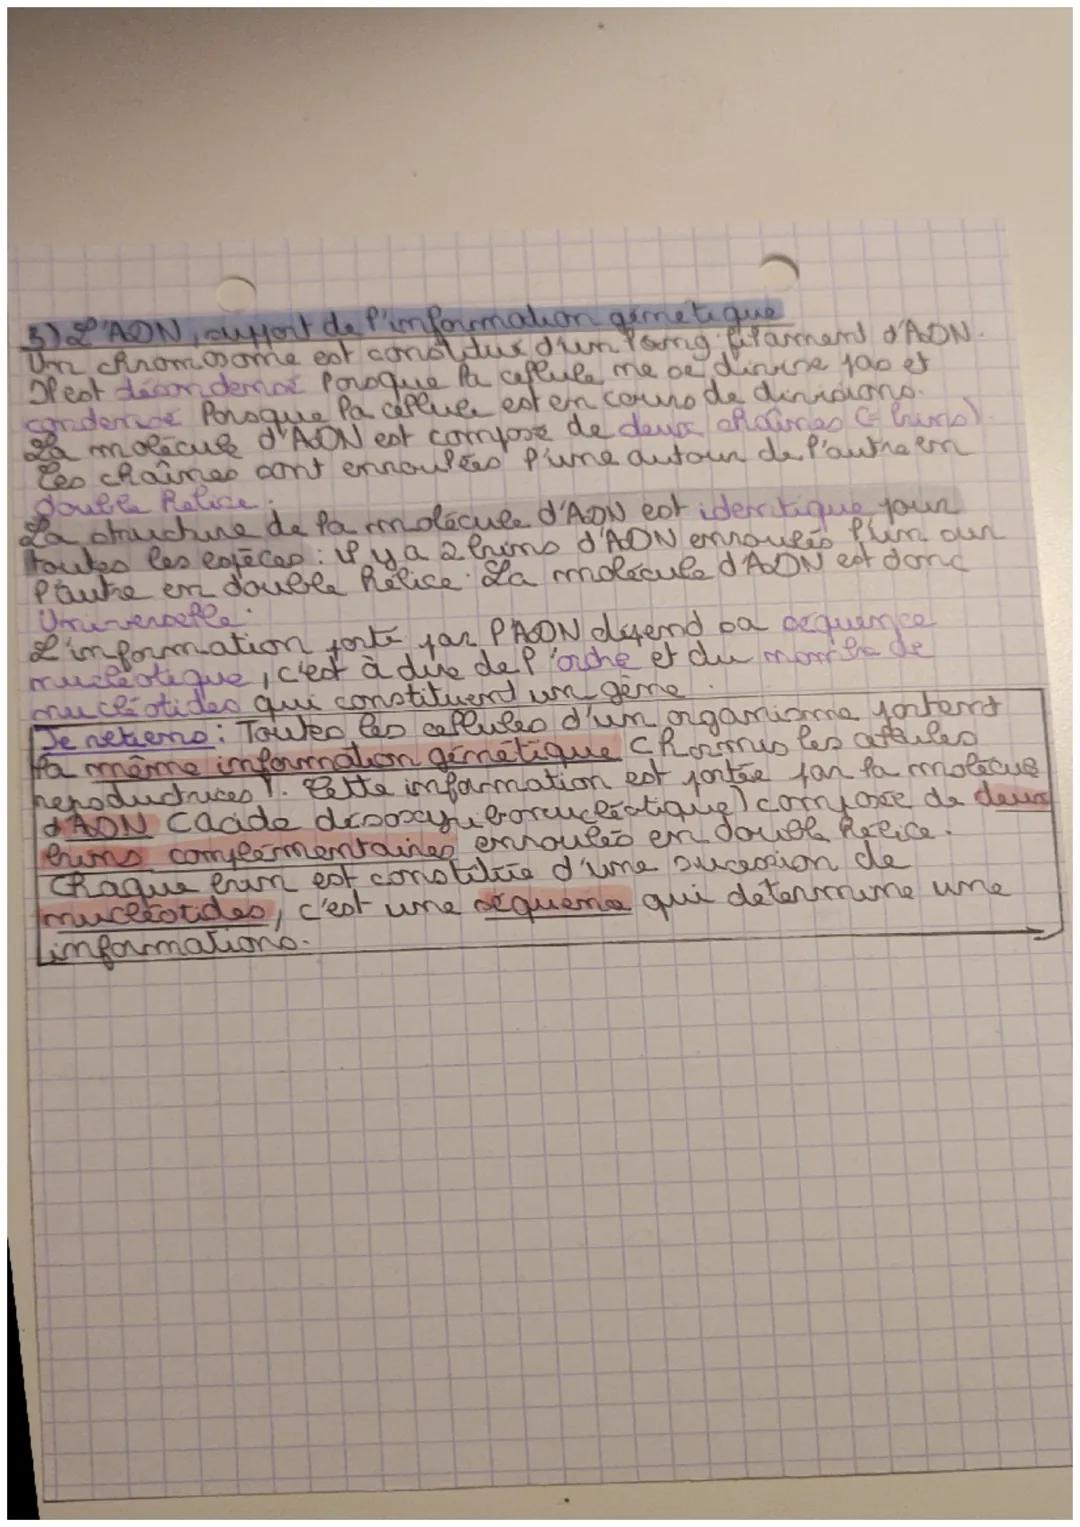 3) L'ADN, support de l'information génétique
Un chromosome est constitus d'un long filament d'ADN.
Il est décondensé lorsque la cellule ne se divise pas et
condensé lorsque la cellule est en cours de divisions.
La molécule d'ADN est compose de deux chaînes (= brins).
Ces chaînes sont enroulées l'une autour de l'autre en
double hélice.
La structure de la molécule d'ADN est identique pour
toutes les espèces : il y a 2 brins d'ADN enroulés l'un sur
l'autre en double hélice. La molécule d'ADN est donc
Universelle.
L'information porté par l'ADN dépend sa séquence
nucléotique, c'est à dire de l'ordre et du nombre de
nucléotides qui constituent un gène.
Je retiens : Toutes les cellules d'un organisme portent
la même information génétique (hormis les cellules
reproductrices). Cette information est portée par la molécule
d'ADN (acide désoxyribonucléotique) compose de deux
brins complémentaires enroulés en double hélice.
Chaque brin est constituée d'une sucession de
nucléotides, c'est une séquence qui détermine une
informations.